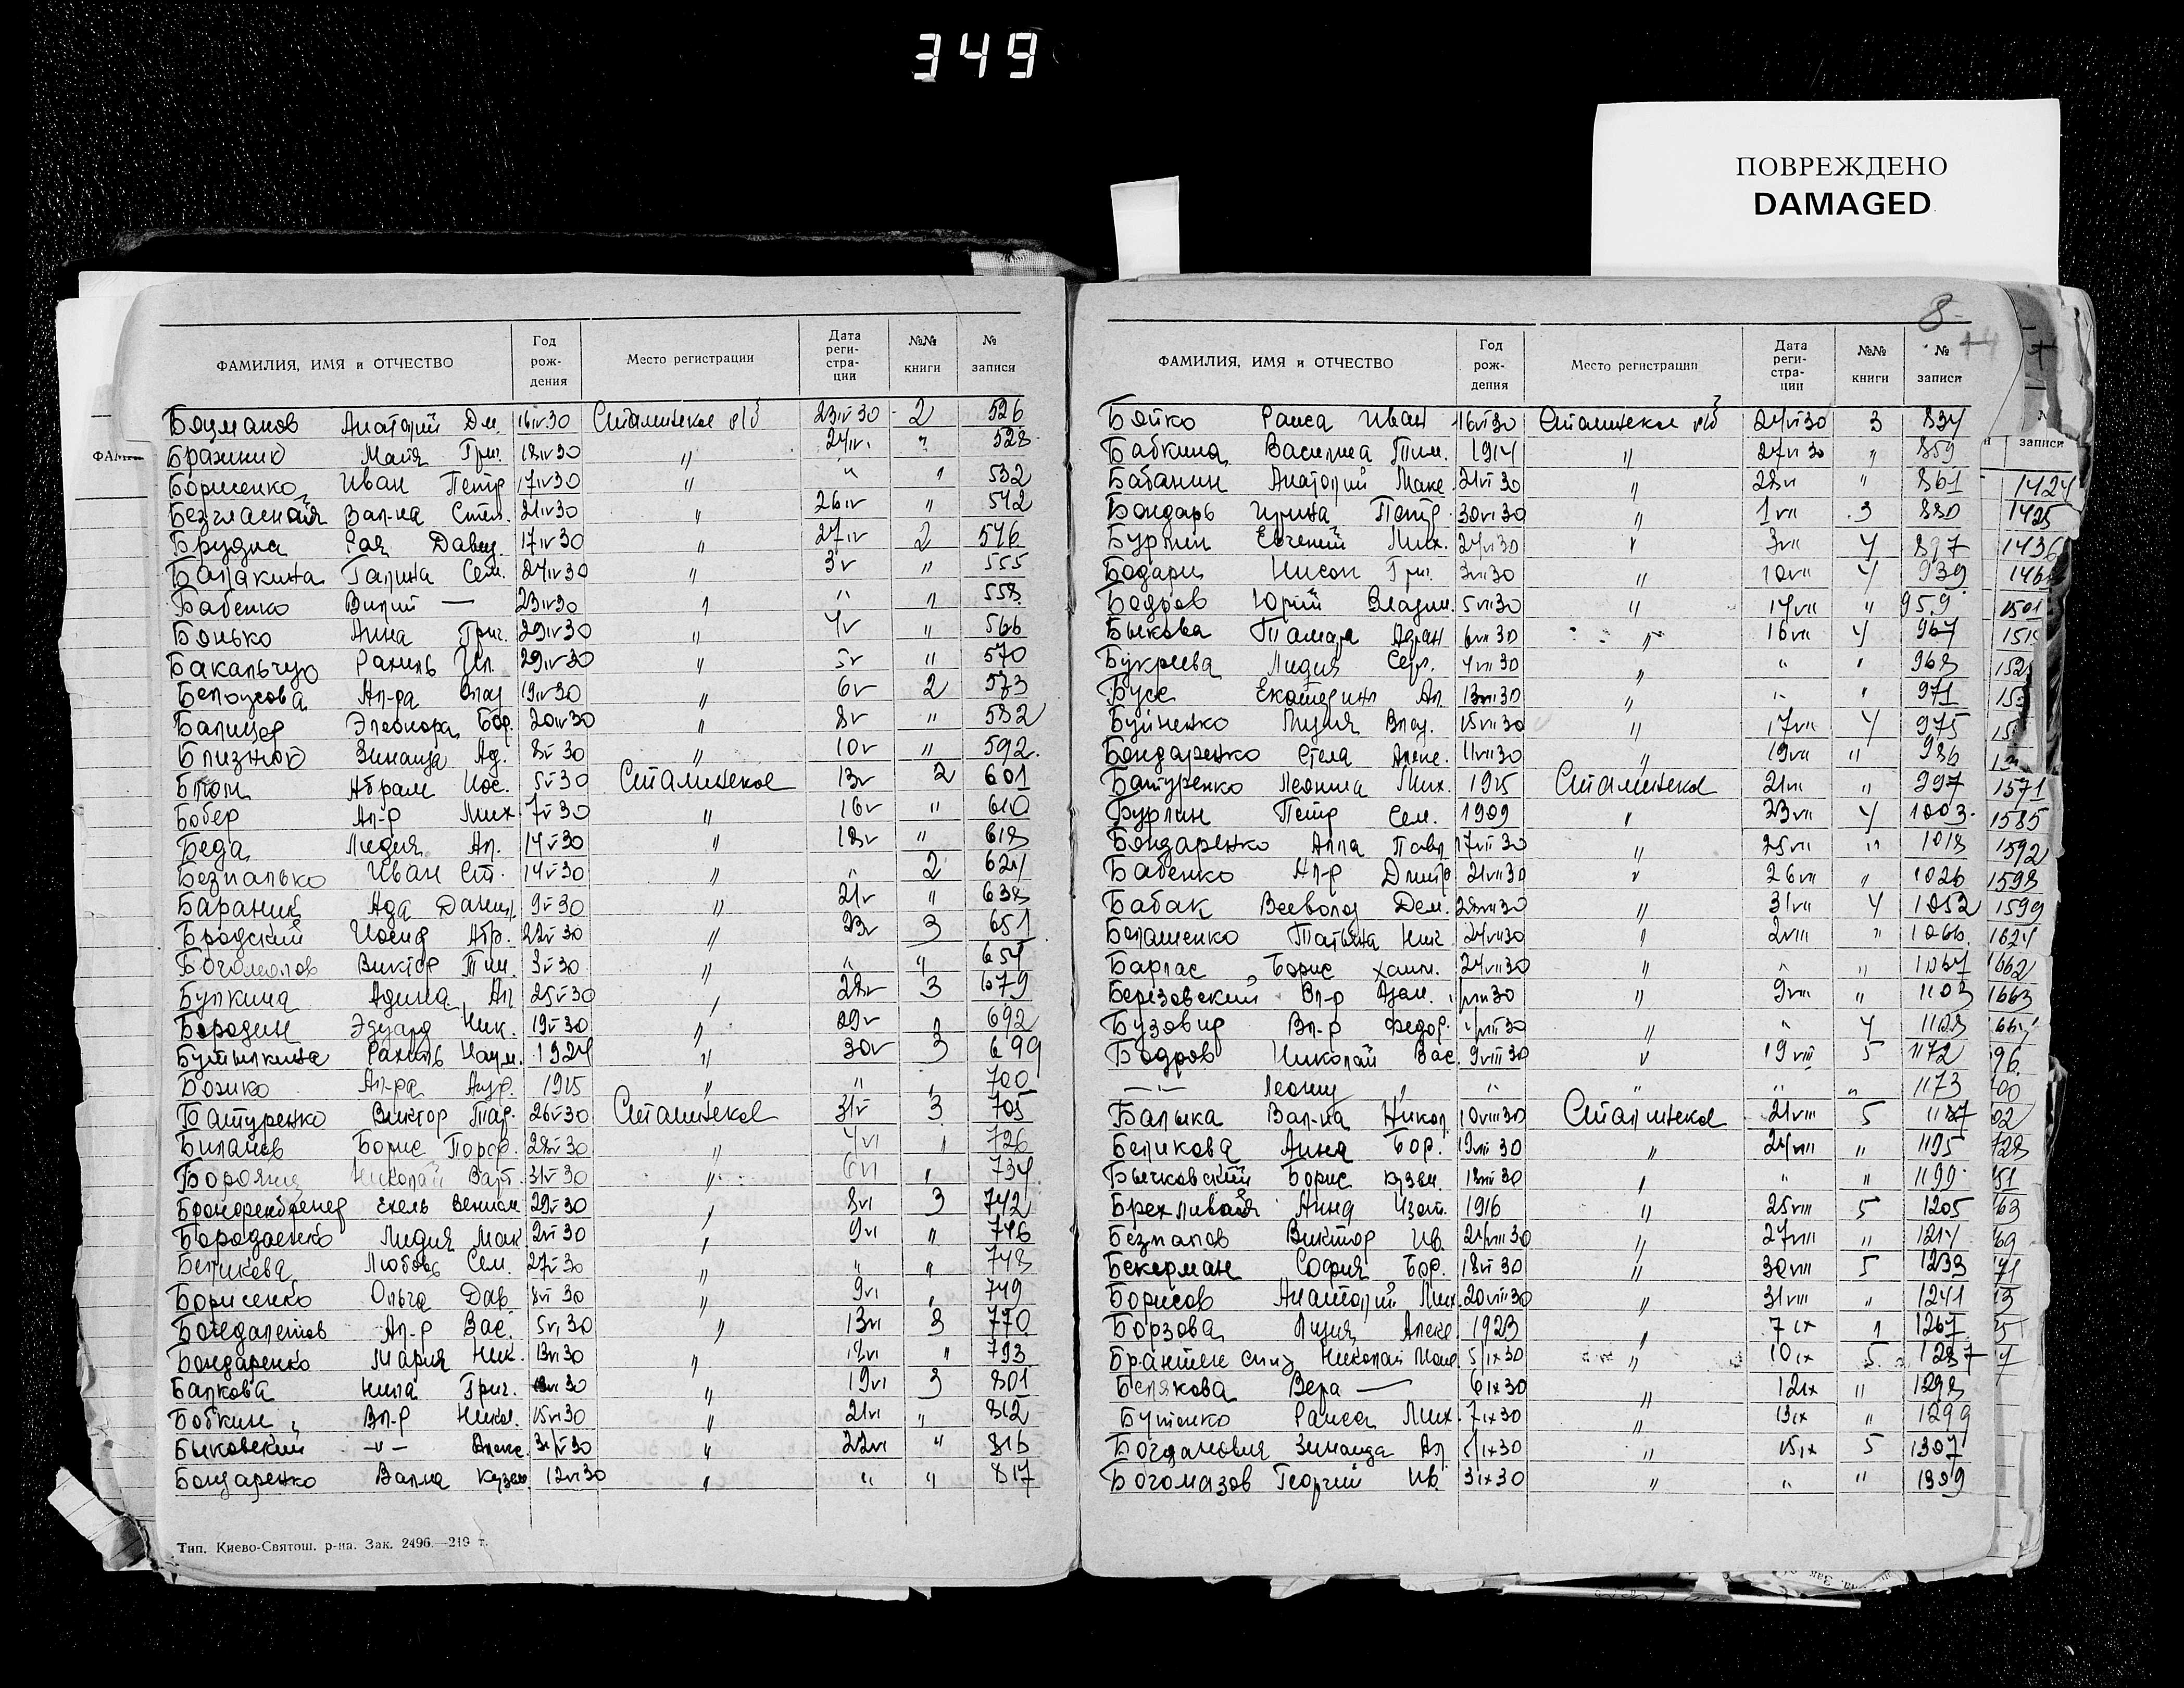 349
ПОВРЕЖДЕНО
DAMAGED
8
ФАМИЛИЯ, ИМЯ и ОТЧЕСТВО Год рождения Место регистрации Дата регистрации №№ книги № записи
Анатолий Дм. 16IV30 Сталинское 23IV30 2 526
Бражник Майя Григ. 18IV30 " 24IV " 528
Борисенко Иван Петр 17IV30 " " " 532
Безгласная Вал-на Степ. 21IV30 " 26IV " 542
Брудна Рая Давид. 17IV30 " 27IV 2 546
Балакина Галина Сем. 24IV30 " 3V " 555
Бабенко Вилий — 23IV30 " " " 558
Бонько Анна Григ. 29IV30 " 4V " 566
Бакальчук Рахиль 29IV30 " 5V " 570
Белоусова Ал-ра Влад 19IV30 " 6V 2 573
Балицер Элеонора Бор. 20IV30 " 8V " 582
Близнюк Зинаида Ад. 8V30 " 10V " 592
Блюм Абрам Иос. 5V30 Сталинское 13V 2 601
Бобер Ал-р Мих 7V30 " 16V " 610
Беда Лидия Ал. 14V30 " 18V " 618
Безпалько Иван Ст. 14V30 " " 2 624
Бараник Ада Данил. 9V30 " 21V " 638
Бродский Иосиф Абр. 22V30 " 23V 3 651
Богомолов Виктор Тим. 3V30 " " " 654
Булкина Адина Ал. 25V30 " 28V 3 679
Бородин Эдуард Ник. 19V30 " 29V " 692
Бутылкина Рахиль Наум. 1924 " 30V 3 699
Божко Ал-ра Анд. 1915 " " " 700
Батуренко Виктор 26V30 Сталинское 31V 3 705
Борис Порф. 28V30 " 4VI " 726
Николай 31V30 " 6VI " 734
Ехель Вениам 29V30 " 8VI 3 742
Лидия Мак 2VI30 " 9VI " 746
Беликова Любовь Сем. 27V30 " " " 748
Борисенко Ольга Дав. 8VI30 " 9VI " 749
Бондалетов Ал-р Вас. 5VI30 " 13VI 3 770
Бондаренко Мария Ник. 13VI30 " 18VI " 793
Балкова Нина Григ. " 19VI 3 801
Бобкин Вл-р Никол. 15VI30 " 21VI " 812
Быковский -"- Алекс. " 22VI " 816
Бондаренко Вал-на Кузьм. 12VI30 " " " 817
Тип. Киево-Святош. р-на. Зак. 2496.—219 т.
ФАМИЛИЯ, ИМЯ и ОТЧЕСТВО Год рождения Место регистрации Дата регистрации №№ книги № записи
Бойко Раиса Иван 16VI30 Сталинское 24VI30 3 834
Бабкина Василиса Тим. 1914 " 27VI30 " 859
Бабанин Анатолий Макс. 21VI30 " 28VI " 861
Бондарь Ирина Петр. 30VI30 " 1VII 3 880
Евгений Мих. 24VI30 " 3VII 4 897
Бодарин Нисон Григ. 3VII30 " 10VII 4 939
Бодров Юрий Владим. 5VII30 " 14VII " 959
Быкова Тамара 6VII30 " 16VII 4 967
Букреева Лидия Серг. 4VII30 " " " 968
Бусс Екатерина Ал 13VII30 " " " 971
Буйненко Лидия Влад. 15VII30 " 17VII 4 975
Бондаренко Стела Алекс. 11VII30 " 19VII " 986
Батуренко Леонила Мих. 1915 Сталинское 21VII " 997
Бурлин Петр Сем. 1909 " 23VII 4 1003
Бондаренко Алла Павл 17VII30 " 25VII " 1018
Бабенко Ал-р Дмитр 21VII30 " 26VII " 1026
Бабак Всеволод Дем. 28VII30 " 31VII 4 1052
Белашенко Татьяна Ник 24VII30 " 2VIII " 1066
Барлас Борис Хаим. 24VII30 " " " 1067
Березовский Вл-р Адам. " 9VIII " 1103
Бузовир Вл-р Федор. " " 4 1108
Бодров Николай Вас. 9VIII30 " 19VIII 5 1172
—"— Леонид " " " " " 1173
Балыка Вал-на Никол. 10VIII30 Сталинское 21VIII 5 1187
Беликова Анна Бор. 19VIII30 " 24VIII " 1195
Бычковский Борис Кузьм. 18VIII30 " " " 1199
Брехливая Анна Изот. 1916 " 25VIII 5 1205
Безпалов Виктор Ив. 21VIII30 " 27VIII " 1214
Бекерман София Бор. 18VI30 " 30VIII 5 1233
Борисов Анатолий Мих. 20VIII30 " 31VIII " 1241
Борзова Лидия Алекс 1923 " 7IX " 1267
Николай 5IX30 " 10IX 5 1287
Белякова Вера — 6IX30 " 12IX " 1298
Бутенко Раиса Мих. 7IX30 " 13IX " 1299
Зинаида Ал " 15IX 5 1307
Богомазов Георгий Ив. 3IX30 " " " 1309
записи
1424
1425
1436
1501
1571
1585
1592
1598
1599
1624
1662
1663